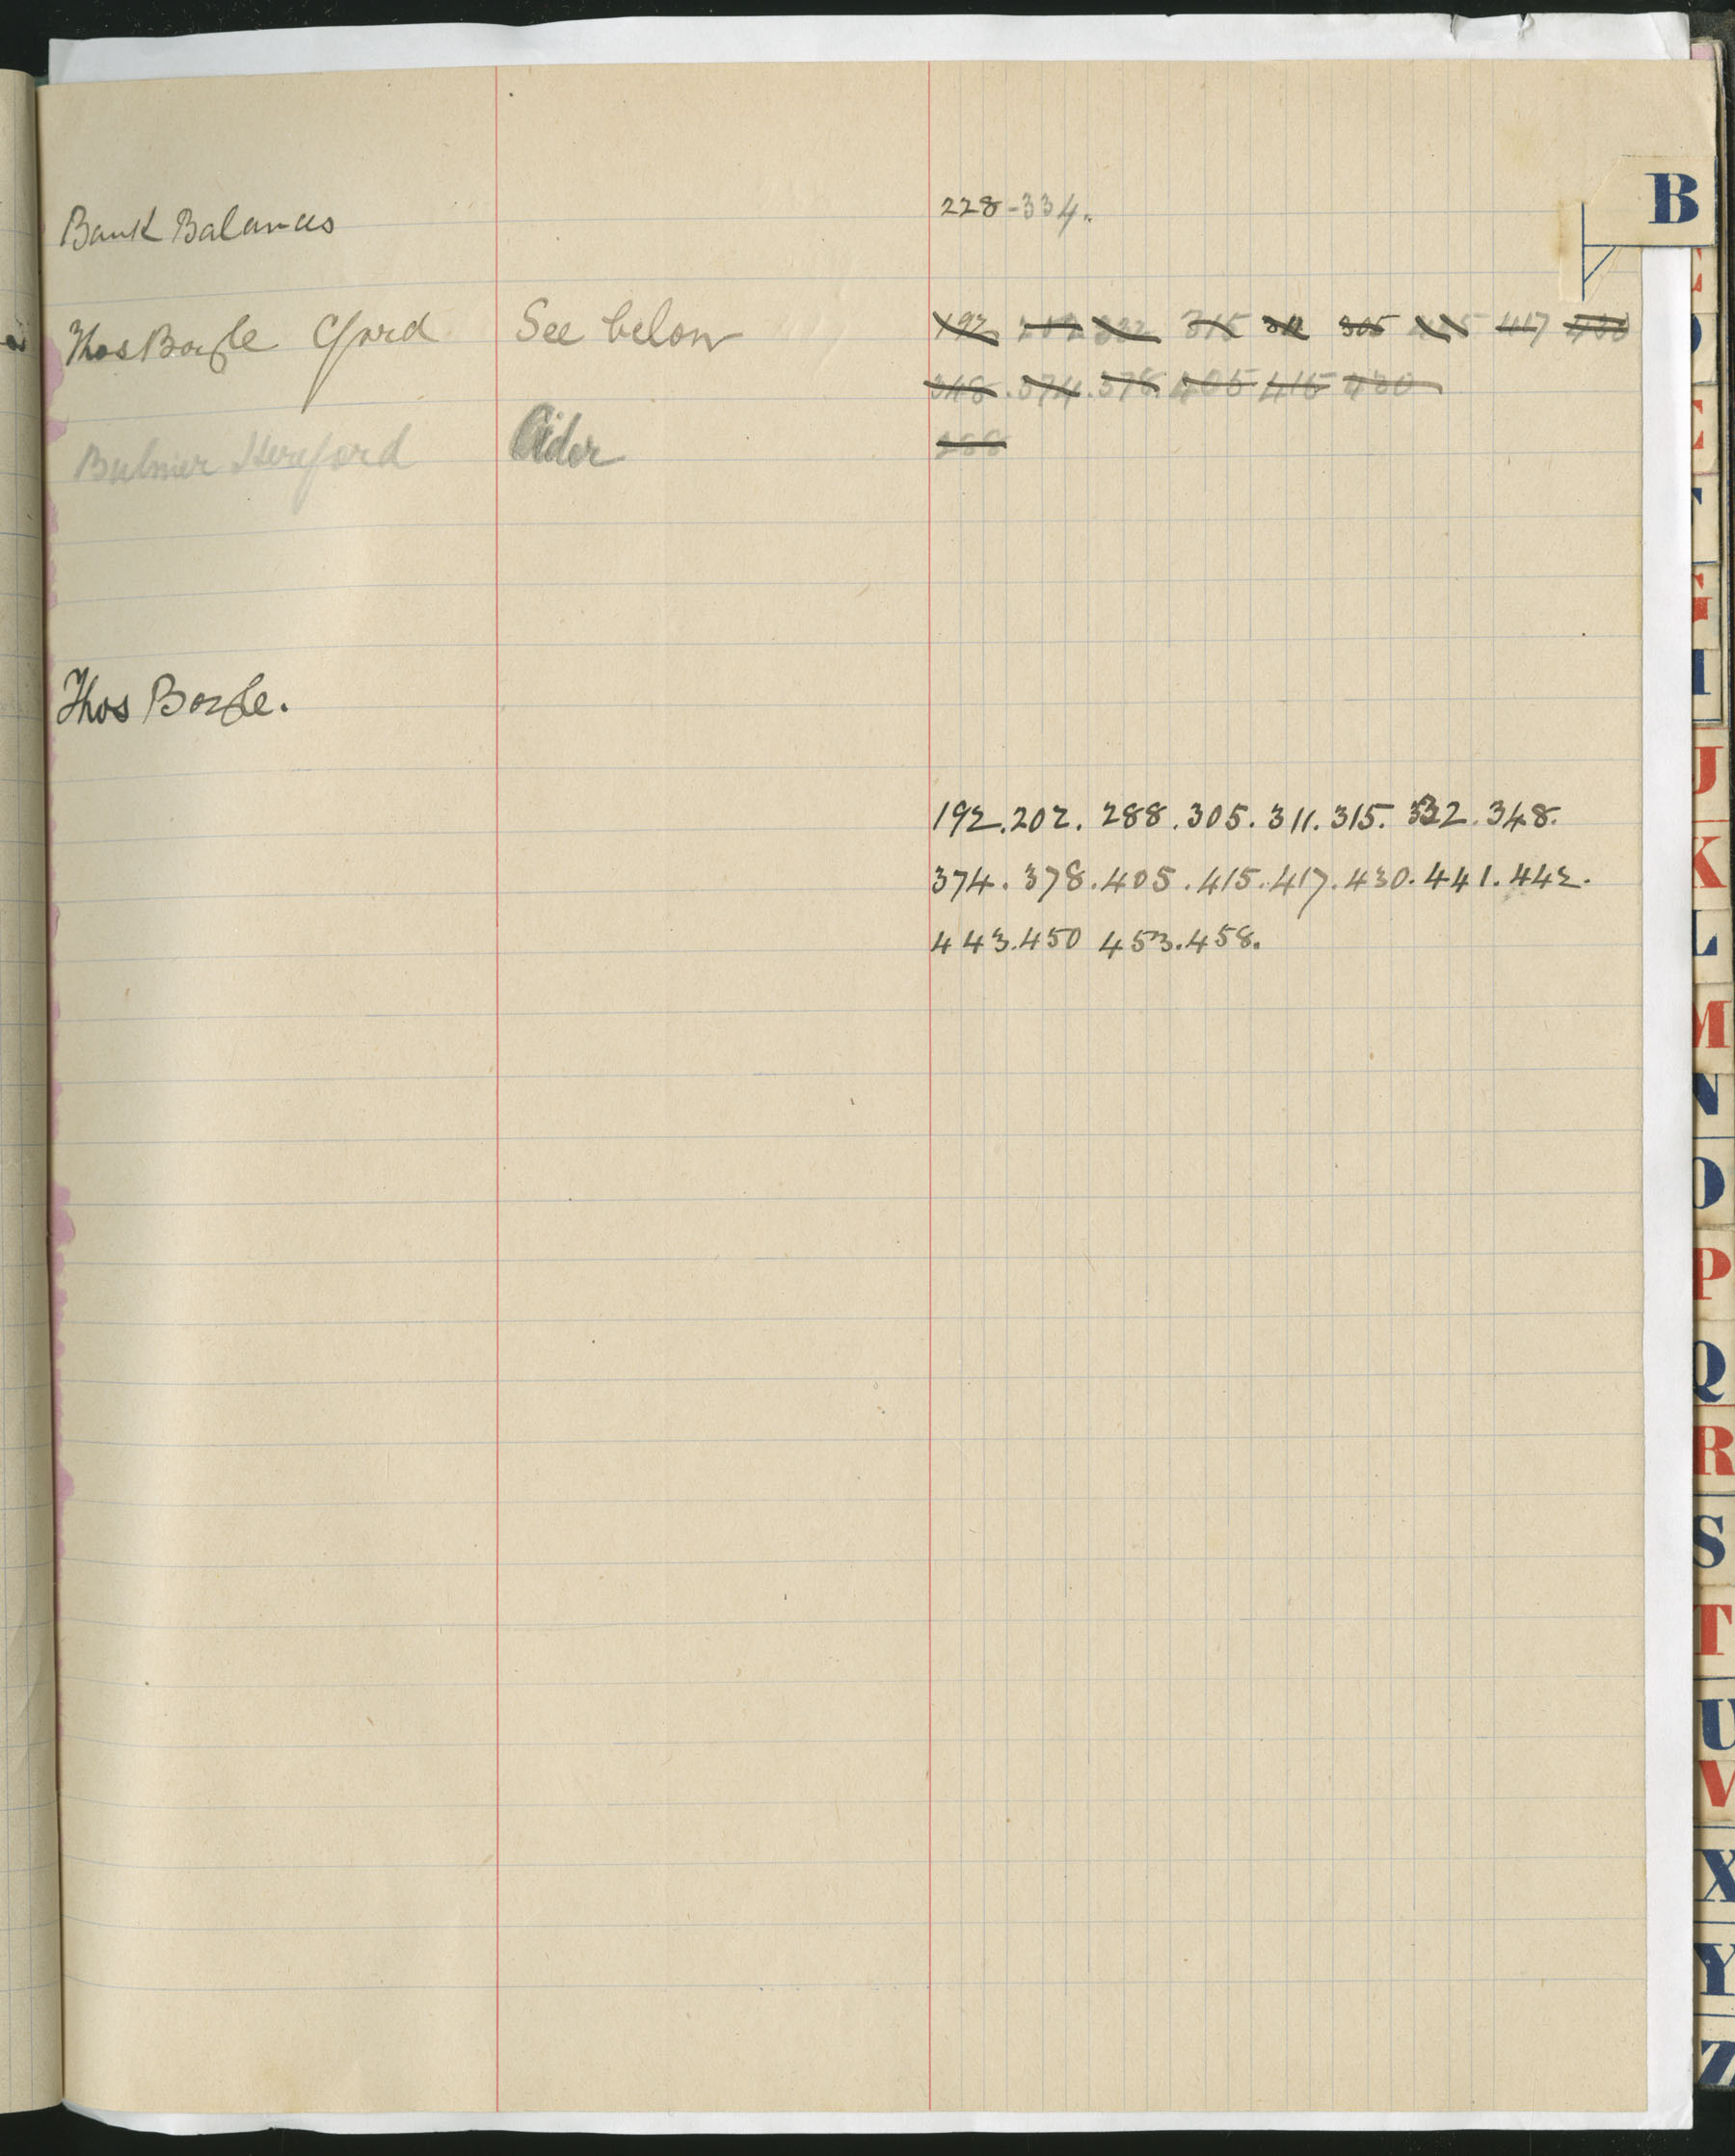 B
Bank Balances 228-334.
Thos Boyle Cford See below 192 202 332 315 311 305 417 430
348. 374. 378. 405 415 430
Bulmer Hereford Cider 288
Thos Boyle.
192. 202. 288. 305. 311. 315. 332. 348.
374. 378. 405. 415. 417. 430. 441. 442.
443. 450 453. 458.
J
K
L
M
N
O
P
Q
R
S
T
U
V
X
Y
Z